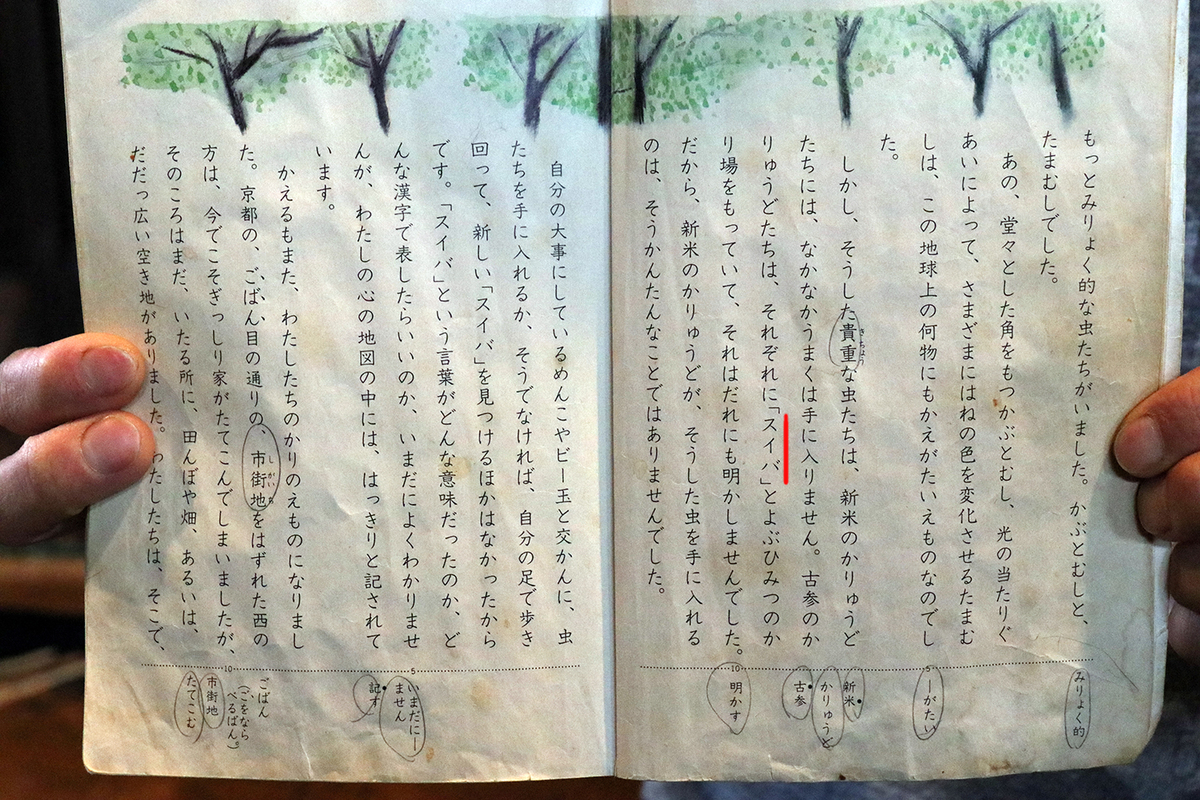 もっとみりょく的な虫たちがいました。かぶとむしと、
たまむしでした。
あの、堂々とした角をもつかぶとむし、光の当たりぐ
あいによって、さまざまにはねの色を変化させるたまむ
しは、この地球上の何物にもかえがたいえものなのでし
た。
しかし、そうした貴重な虫たちは、新米のかりゅうど
きちょう
たちには、なかなかうまくは手に入りません。古参のか
りゅうどたちは、それぞれに「スイバ」とよぶひみつのか
り場をもっていて、それはだれにも明かしませんでした。
だから、新米のかりゅうどが、そうした虫を手に入れる
のは、そうかんたんなことではありませんでした。
みりょく的
5
―がたい
新米
かりゅうど
古参
10
明かす
自分の大事にしているめんこやビー玉と交かんに、虫
たちを手に入れるか、そうでなければ、自分の足で歩き
回って、新しい「スイバ」を見つけるほかはなかったから
です。「スイバ」という言葉がどんな意味だったのか、ど
んな漢字で表したらいいのか、いまだによくわかりませ
んが、わたしの心の地図の中には、はっきりと記されて
います。
かえるもまた、わたしたちのかりのえものになりまし
た。京都の、ごばん目の通りの、市街地をはずれた西の
しがいち
方は、今でこそぎっしり家がたてこんでしまいましたが、
そのころはまだ、いたる所に、田んぼや畑、あるいは、
だだっ広い空き地がありました。わたしたちは、そこで、
5
いまだに―
ません
記す
10
ごばん
（ごをなら
べるばん）。
市街地
たてこむ